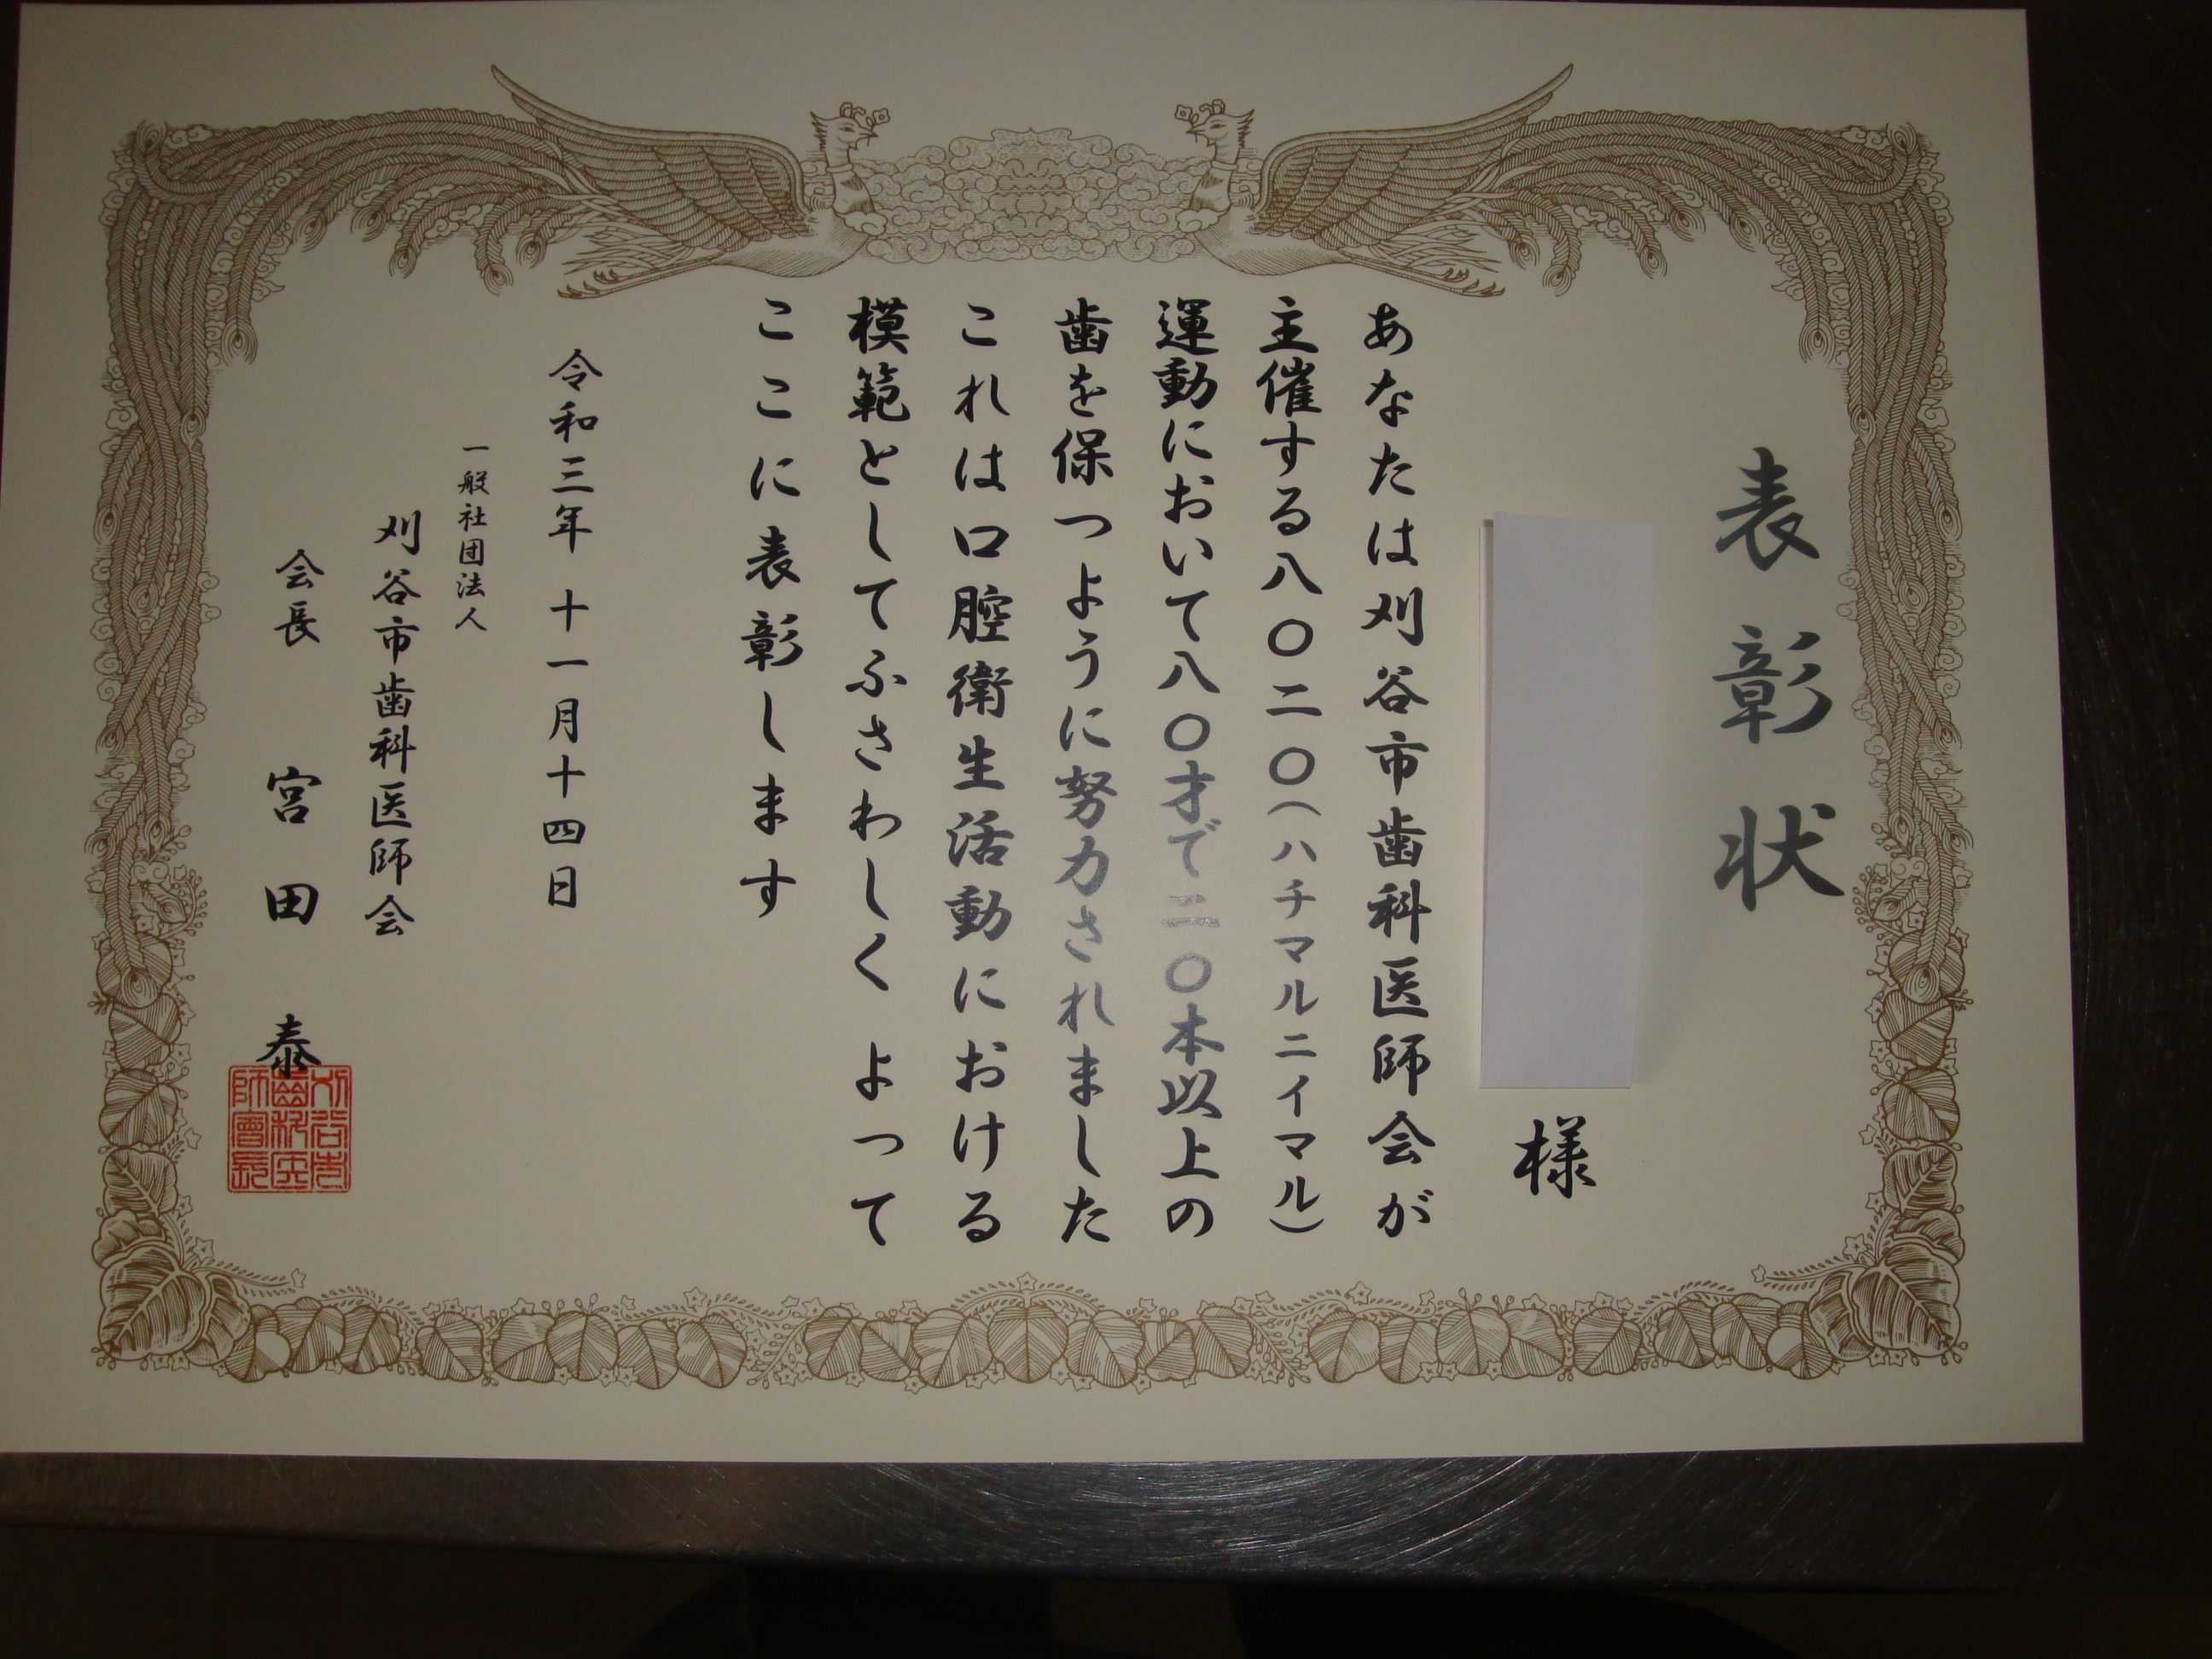 表彰状
様
あなたは刈谷市歯科医師会が
主催する八〇二〇(ハチマルニイマル)
運動において八〇才で二〇本以上の
歯を保つように努力されました
これは口腔衛生活動における
模範としてふさわしく よって
ここに表彰します
令和三年 十一月十四日
一般社団法人
刈谷市歯科医師会
会長 宮田 泰
刈谷市
齒科医
師會長